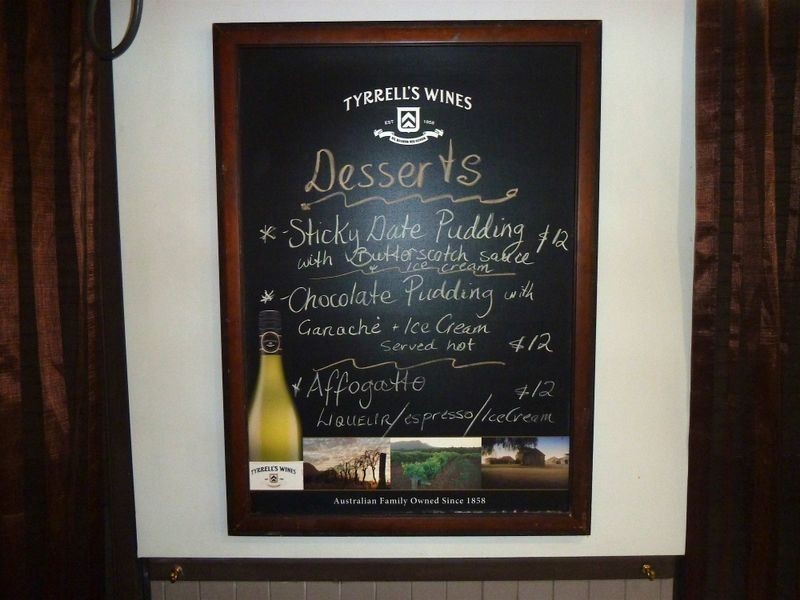 TYRRELL'S WINES
EST 1858
Desserts
* - Sticky Date Pudding $12
with Butterscotch sauce
+ Ice cream
* - Chocolate Pudding with
Ganachè + Ice Cream
Served hot $12
* Affogatto $12
LIQUEUR/espresso/IceCream
TYRRELL'S WINES
Australian Family Owned Since 1858